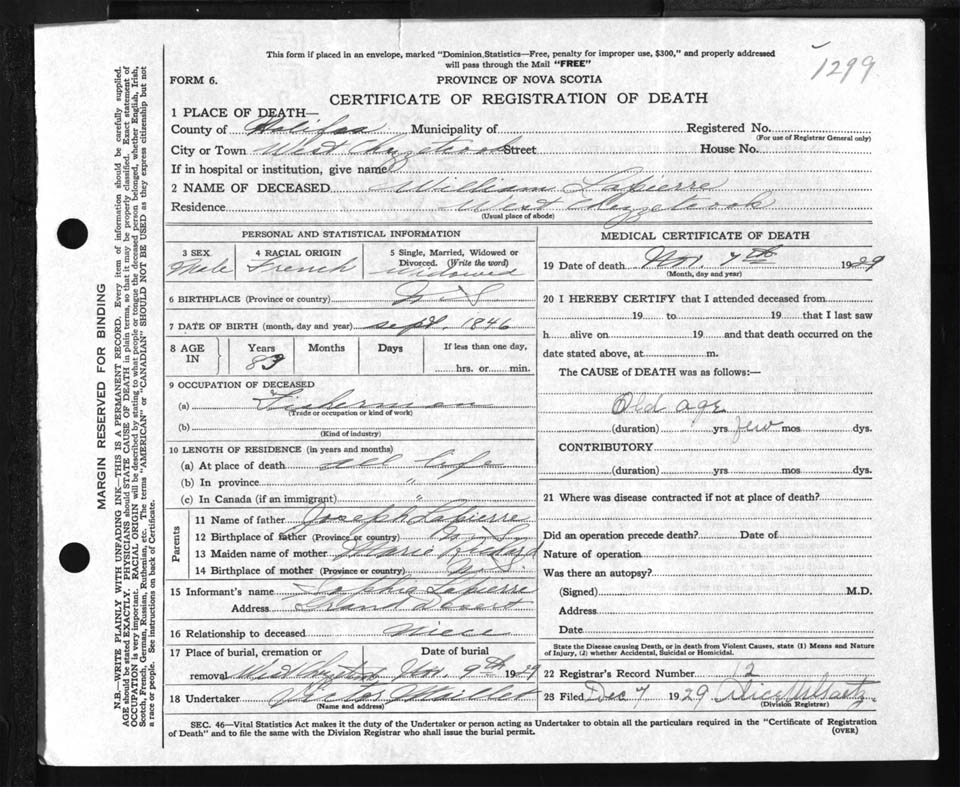 This form if placed in an envelope, marked "Dominion Statistics—Free, penalty for improper use, $300," and properly addressed
will pass through the Mail "FREE"
1299
FORM 6.
PROVINCE OF NOVA SCOTIA
CERTIFICATE OF REGISTRATION OF DEATH
1 PLACE OF DEATH—
County of Halifax Municipality of Registered No.
(For use of Registrar General only)
City or Town West Chezzetcook Street House No.
If in hospital or institution, give name
2 NAME OF DECEASED William Lapierre
Residence West Chezzetcook
(Usual place of abode)
PERSONAL AND STATISTICAL INFORMATION
3 SEX 4 RACIAL ORIGIN 5 Single, Married, Widowed or
Divorced. (Write the word)
Male French Widowed
6 BIRTHPLACE (Province or country) N S
7 DATE OF BIRTH (month, day and year) Sept. 1846
8 AGE IN Years Months Days If less than one day,
83 hrs. or min.
9 OCCUPATION OF DECEASED
(a) Fisherman
(Trade or occupation or kind of work)
(b)
(Kind of industry)
10 LENGTH OF RESIDENCE (in years and months)
(a) At place of death all life
(b) In province "
(c) In Canada (if an immigrant) "
Parents
11 Name of father Joseph Lapierre
12 Birthplace of father (Province or country) N. S.
13 Maiden name of mother Marie
14 Birthplace of mother (Province or country) N. S.
15 Informant's name Lapierre
Address Grand Desert
16 Relationship to deceased niece
17 Place of burial, cremation or Date of burial
removal West Nov. 9th 1929
18 Undertaker Victor
(Name and address)
MEDICAL CERTIFICATE OF DEATH
19 Date of death Nov. 7th 1929
(Month, day and year)
20 I HEREBY CERTIFY that I attended deceased from
19 to 19 that I last saw
h alive on 19 and that death occurred on the
date stated above, at m.
The CAUSE of DEATH was as follows:—
Old age
(duration) yrs few mos dys.
CONTRIBUTORY
(duration) yrs. mos. dys.
21 Where was disease contracted if not at place of death?
Did an operation precede death? Date of
Nature of operation
Was there an autopsy?
(Signed) M.D.
Address
Date
State the Disease causing Death, or in death from Violent Causes, state (1) Means and Nature
of Injury, (2) whether Accidental, Suicidal or Homicidal.
22 Registrar's Record Number 12
23 Filed Dec 7 1929
(Division Registrar)
SEC. 46—Vital Statistics Act makes it the duty of the Undertaker or person acting as Undertaker to obtain all the particulars required in the "Certificate of Registration
of Death" and to file the same with the Division Registrar who shall issue the burial permit.
(OVER)
MARGIN RESERVED FOR BINDING
N.B.—WRITE PLAINLY WITH UNFADING INK—THIS IS A PERMANENT RECORD. Every item of information should be carefully supplied.
AGE should be stated EXACTLY. PHYSICIANS should STATE CAUSE OF DEATH in plain terms, so that it may be properly classified. Exact statement of
OCCUPATION is very important. RACIAL ORIGIN will be described by stating to what people or tongue the deceased person belonged, whether English, Irish,
Scotch, French, German, Russian, Ruthenian, etc. The terms "AMERICAN" or "CANADIAN" SHOULD NOT BE USED as they express citizenship but not
a race or people. See instructions on back of Certificate.